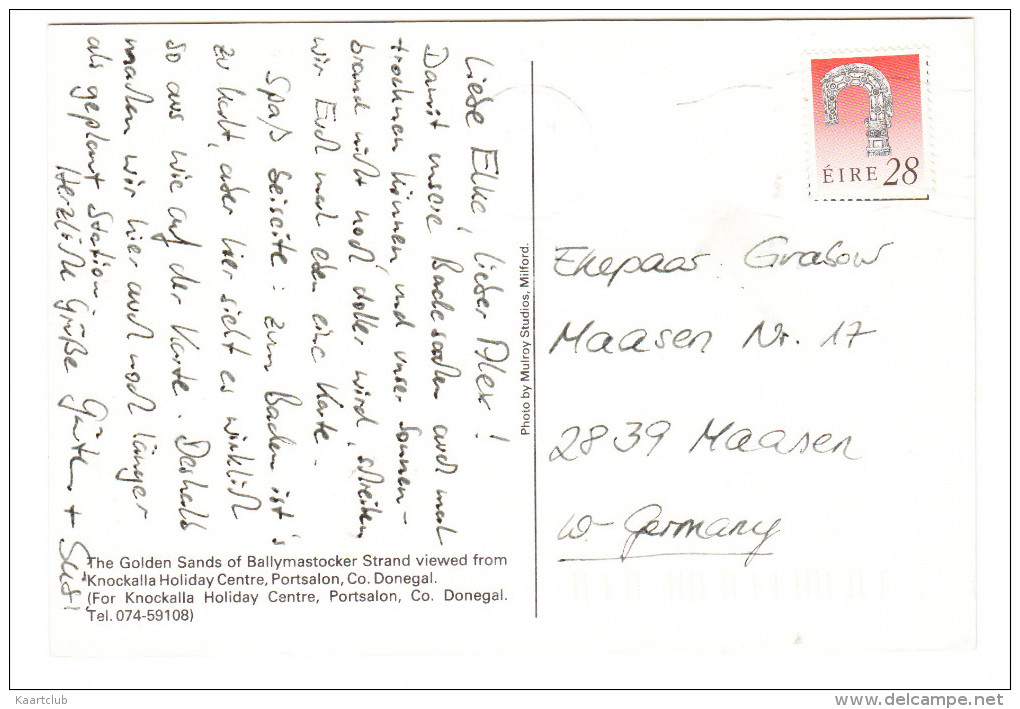 Liebe Elke, lieber Alex!
Damit unsere Badesachen auch mal
trocknen können und unser Sonnen-
brand nicht noch doller wird, schreiben
wir Euch mal eben eine Karte.
Spaß beiseite: zum Baden ist's
zu kalt, aber hier sieht es wirklich
so aus wie auf der Karte. Deshalb
machen wir hier auch noch länger
als geplant Station.
Herzliche Grüße Günter + Susi
The Golden Sands of Ballymastocker Strand viewed from
Knockalla Holiday Centre, Portsalon, Co. Donegal.
(For Knockalla Holiday Centre, Portsalon, Co. Donegal.
Tel. 074-59108)
Photo by Mulroy Studios, Milford.
ÉIRE 28
Ehepaar Grabow
Maasen Nr. 17
2839 Maasen
W-Germany
Kaartclub
www.delcampe.net